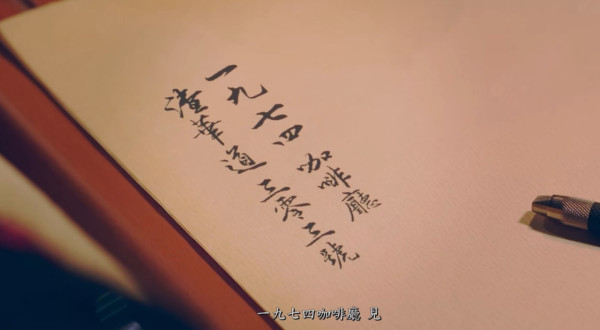 一九七四咖啡廳
渣華道三零三號
一九七四咖啡廳 見